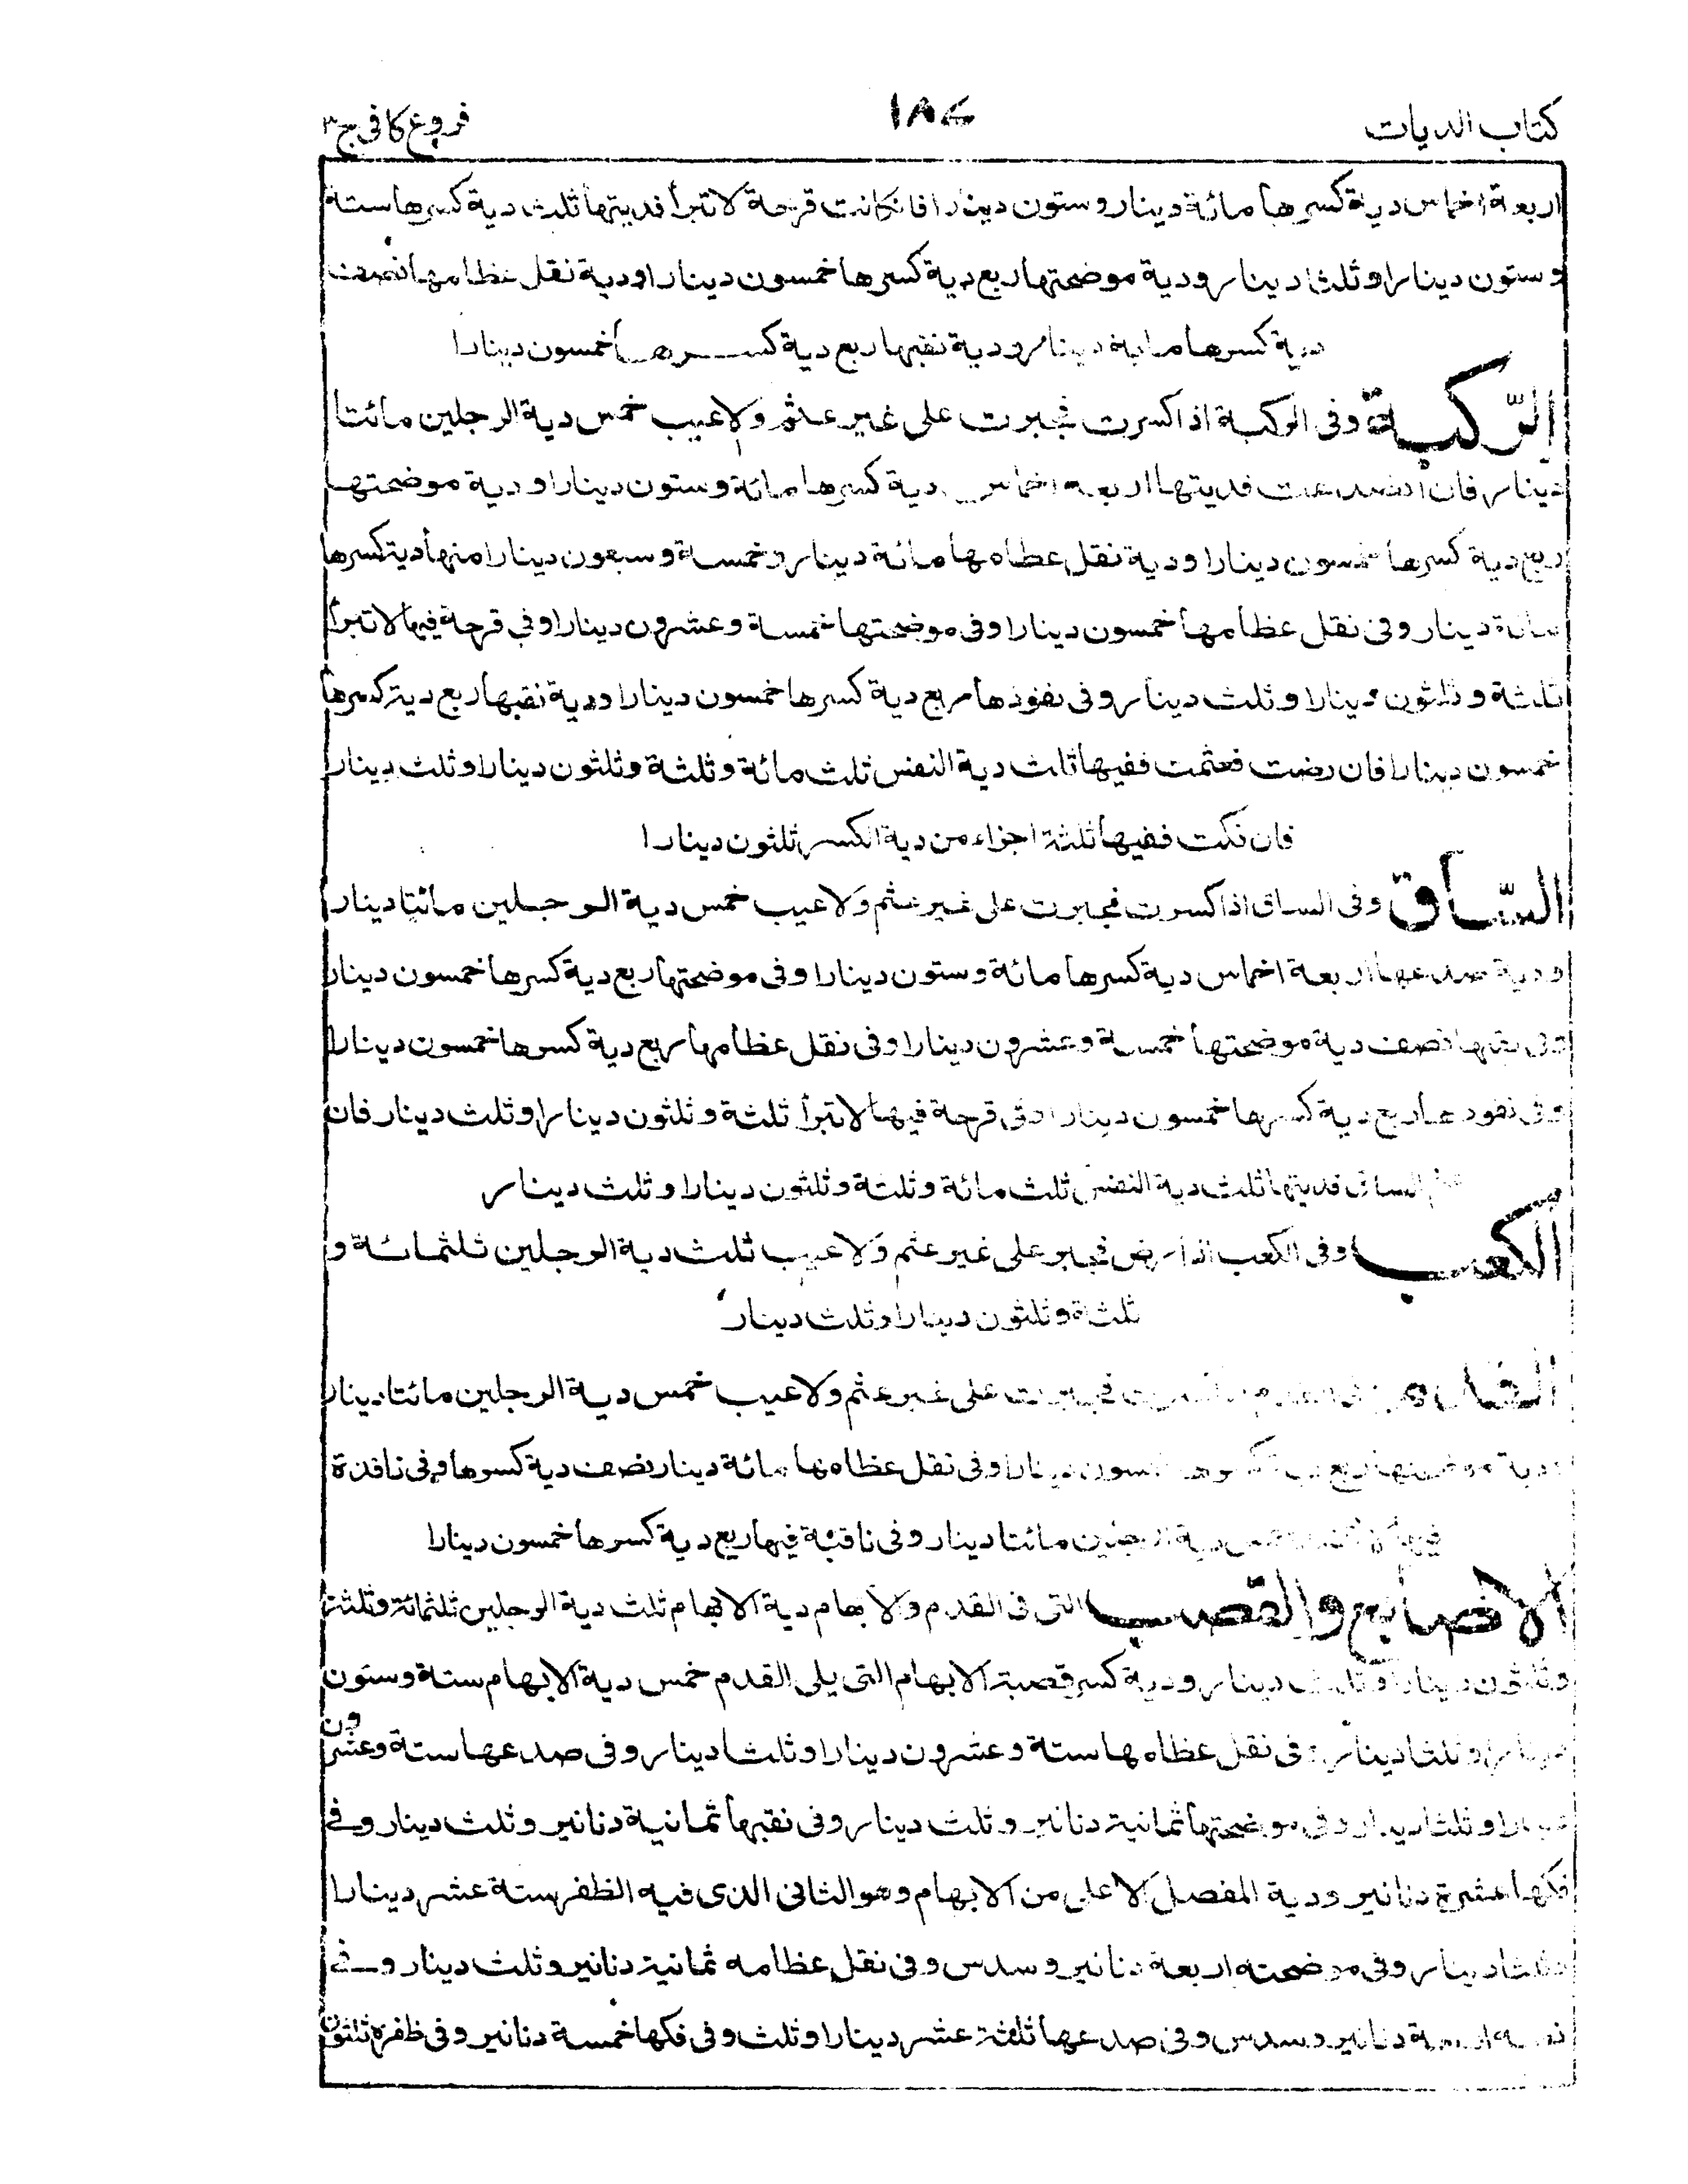 كتاب الديات ١٨٧ فروع كافى ج٣
اربعة اخماس دية كسرها مائة دينار وستون دينارا فانكانت قرحة لا تبرأ فديتها ثلث دية كسرها ستة
وستون دينارا وثلثا دينار ودية موضحتها ربع دية كسرها خمسون دينارا ودية نقل عظامها نصف
دية كسرها مائة دينار ودية نقبها ربع دية كسرها خمسون دينارا
الرّكبة وفى الركبة اذا كسرت فجبرت على غير عثم ولا عيب خمس دية الرجلين مائتا
دينار فان انصدعت فديتها اربعة اخماس دية كسرها مائة وستون دينارا ودية موضحتها
ربع دية كسرها خمسون دينارا ودية نقل عظامها مائة دينار وخمسة وسبعون دينارا منها دية كسرها
مائة دينار وفى نقل عظامها خمسون دينارا وفى موضحتها خمسة وعشرون دينارا وفى قرحة فيها لا تبرأ
ثلثة وثلثون دينارا وثلث دينار وفى نفوذها ربع دية كسرها خمسون دينارا ودية نقبها ربع دية كسرها
خمسون دينارا فان رضت فعثمت ففيها ثلث دية النفس ثلث مائة وثلثة وثلثون دينارا وثلث دينار
فان فكت ففيها ثلثة اجزاء من دية الكسر ثلثون دينارا
السّاق وفى الساق اذا كسرت فجبرت على غير عثم ولا عيب خمس دية الرجلين مائتا دينار
ودية صدعها اربعة اخماس دية كسرها مائة وستون دينارا وفى موضحتها ربع دية كسرها خمسون دينار
وفى نقبها نصف دية موضحتها خمسة وعشرون دينارا وفى نقل عظامها ربع دية كسرها خمسون دينارا
وفى نفوذها ربع دية كسرها خمسون دينارا وفى قرحة فيها لا تبرأ ثلثة وثلثون دينارا وثلث دينار فان
الساق فديتها ثلث دية النفس ثلث مائة وثلثة وثلثون دينارا وثلث دينار
الكعب وفى الكعب اذا رض فجبر على غير عثم ولا عيب ثلث دية الرجلين ثلثمائة و
ثلثة وثلثون دينارا وثلث دينار
القدم كسرت فجبرت على غير عثم ولا عيب خمس دية الرجلين مائتا دينار
ودية موضحتها ربع دية كسرها خمسون دينارا وفى نقل عظامها مائة دينار نصف دية كسرها وفى نافذة
فيها خمس دية الرجلين مائتا دينار وفى ناقبة فيها ربع دية كسرها خمسون دينارا
الاصابع والقصب التى فى القدم والابهام دية الابهام ثلث دية الرجلين ثلثمائة وثلثة
وثلثون دينارا وثلث دينار ودية كسر قصبة الابهام التى يلى القدم خمس دية الابهام ستة وستون
دينارا وثلثا دينار وفى نقل عظامها ستة وعشرون دينارا وثلثا دينار وفى صدعها ستة وعشرون
دينارا وثلثا دينار وفى موضحتها ثمانية دنانير وثلث دينار وفى نقبها ثمانية دنانير وثلث دينار وفى
فكها عشرة دنانير ودية المفصل الاعلى من الابهام وهو الثانى الذى فيه الظفر ستة عشر دينارا
وثلثا دينار وفى موضحته اربعة دنانير وسدس وفى نقل عظامه ثمانية دنانير وثلث دينار وفى
اربعة دنانير وسدس وفى صدعها ثلثة عشر دينارا وثلث وفى فكها خمسة دنانير وفى ظفره ثلثون